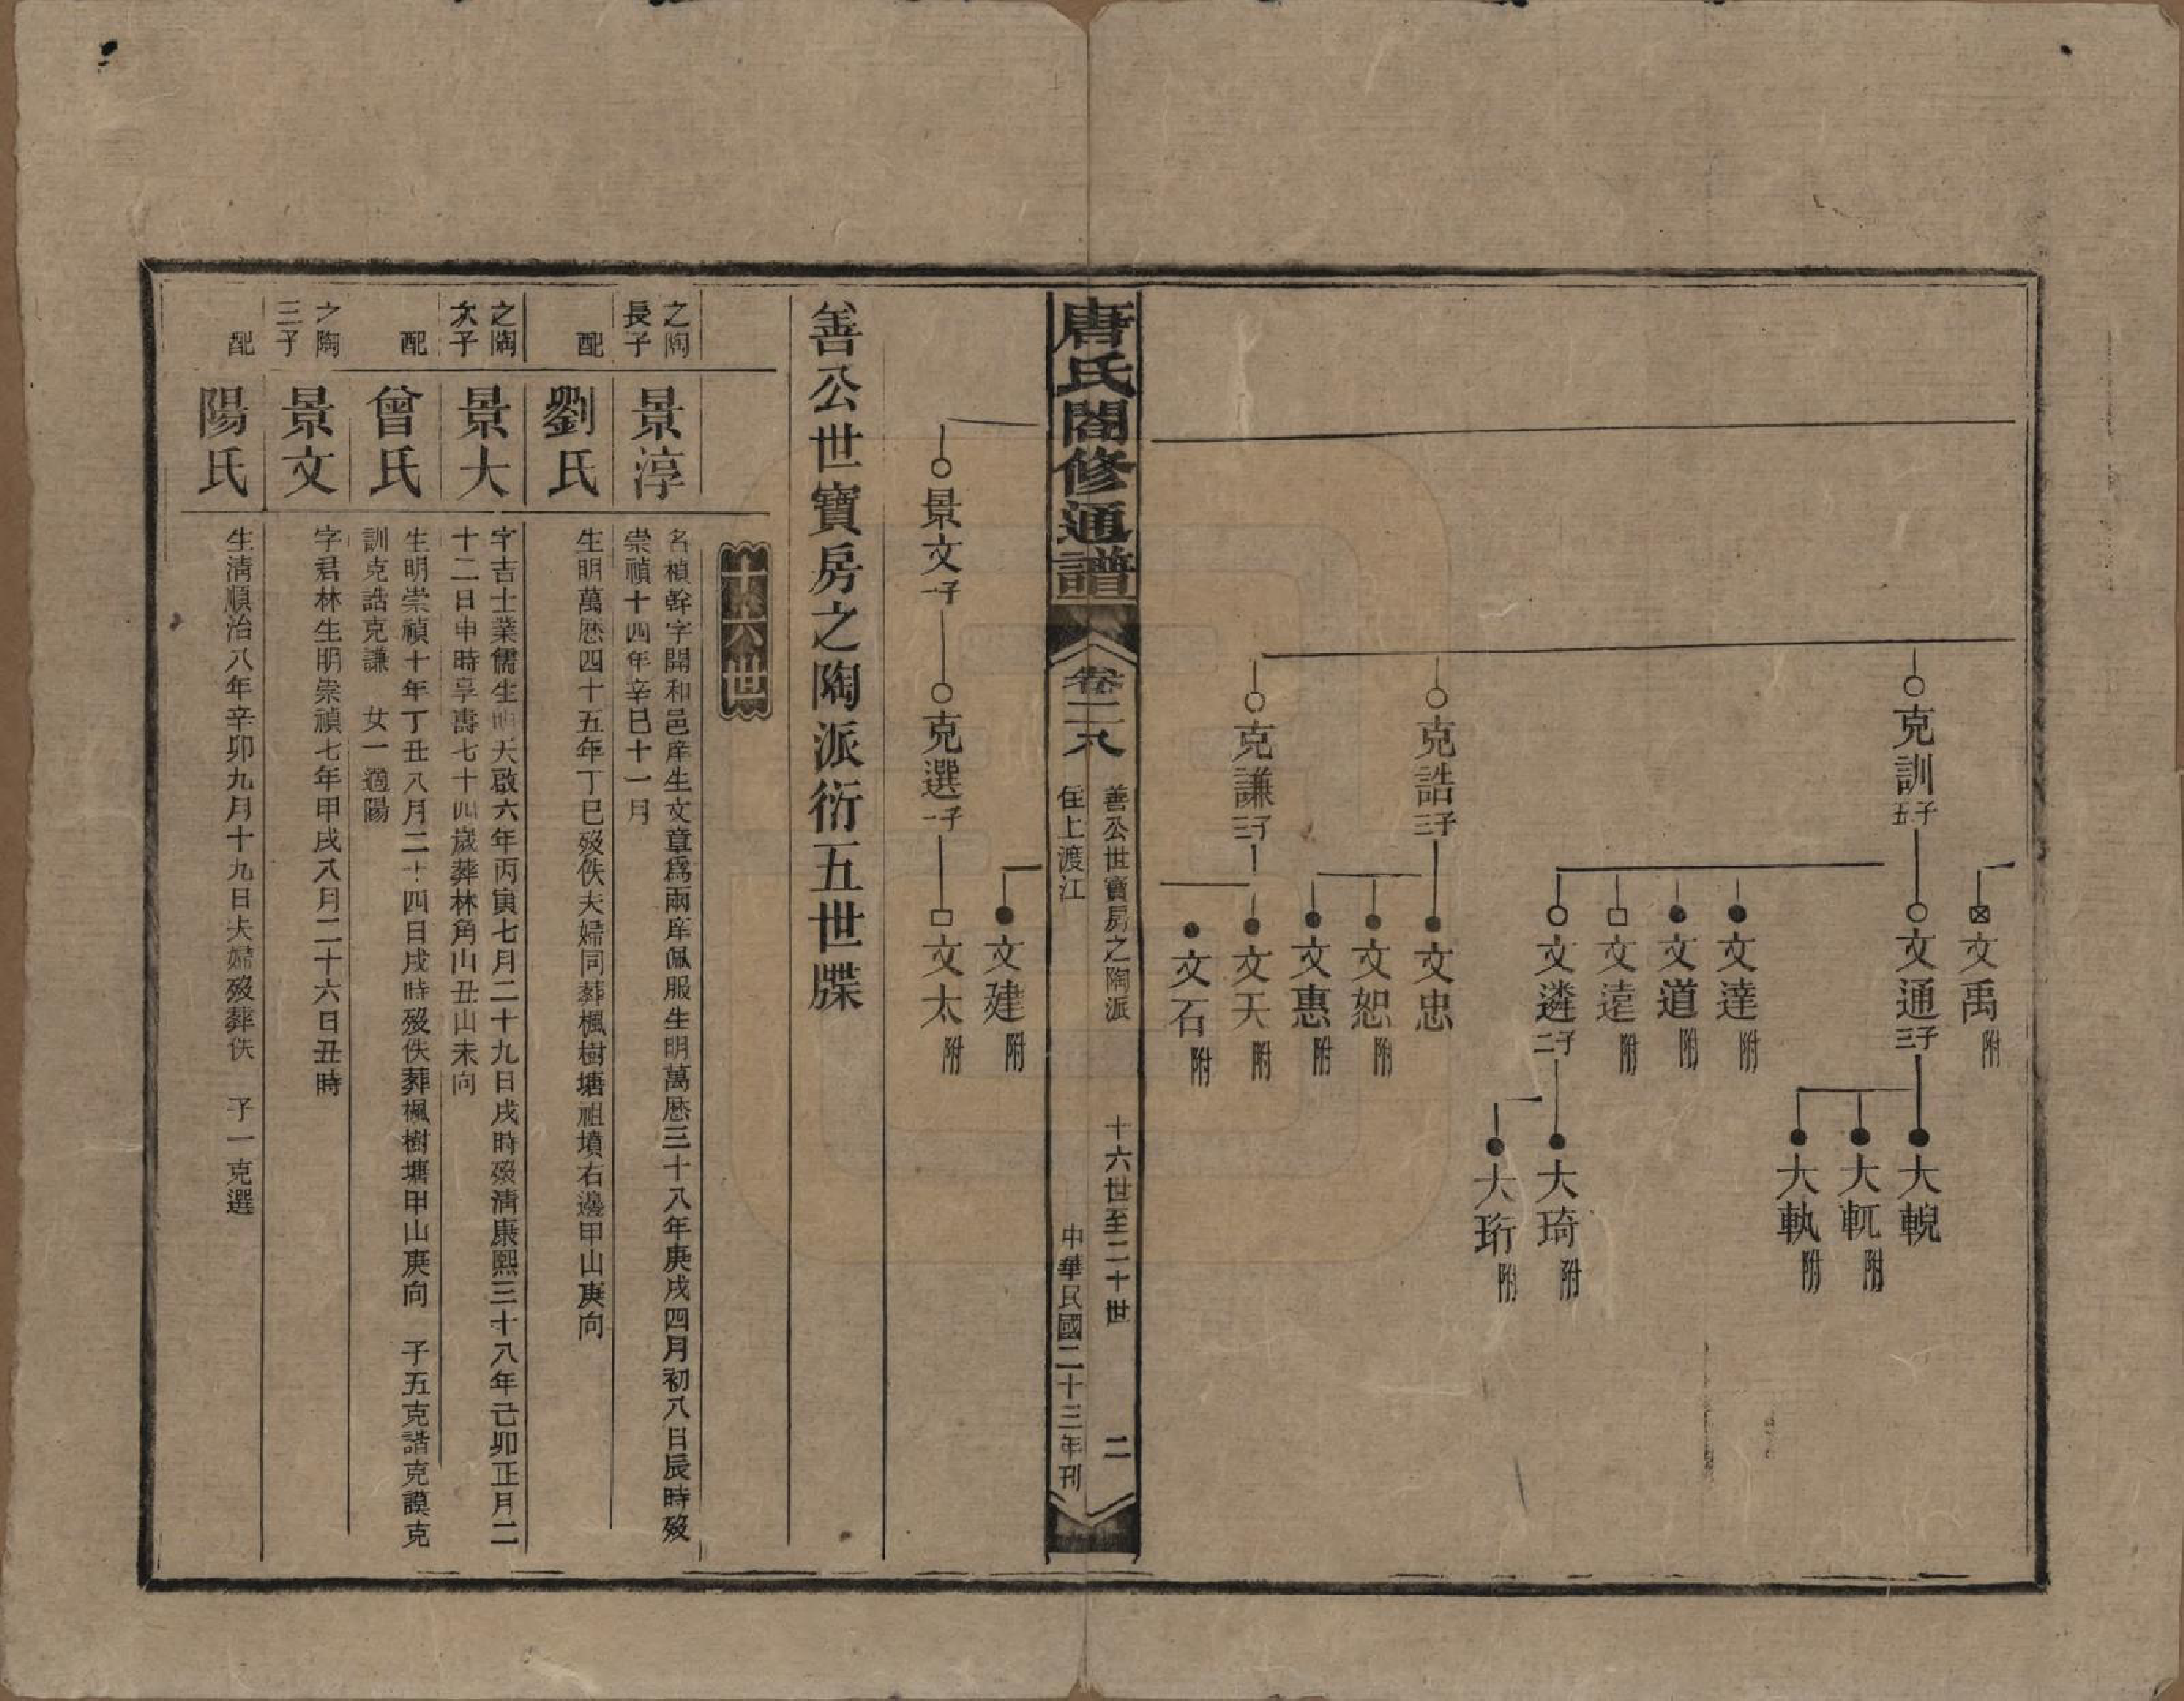 文禹 附
克訓 五子
文通 三子
大輗
大軏 附
大軌 附
文達 附
文道 附
文遠 附
文遴 二子
大琦 附
大珩 附
克誥 三子
文忠
文恕 附
文惠 附
克謙 三子
文天 附
文石 附
唐氏闔修通譜
卷二八
善公世寶房之陶派 十六世至二十世 二
住上渡江 中華民國二十三年刊
文建 附
景文 一子
克選 一子
文太 附
善公世寶房之陶派衍五世牒
十六世
之陶
長子
景淳
名楨幹字開和邑庠生文章爲兩庠佩服生明萬厯三十八年庚戌四月初八日辰時歿
崇禎十四年辛巳十一月
配
劉氏
生明萬厯四十五年丁巳歿佚夫婦同葬楓樹塘祖墳右邊甲山庚向
之陶
次子
景大
字吉士業儒生明天啟六年丙寅七月二十九日戌時歿清康熙三十八年己卯正月二
十二日申時享壽七十四歲葬林角山丑山未向
配
曾氏
生明崇禎十年丁丑八月二十四日戌時歿佚葬楓樹塘甲山庚向 子五克諧克謨克
訓克誥克謙 女一適陽
之陶
三子
景文
字君林生明崇禎七年甲戌八月二十六日丑時
配
陽氏
生清順治八年辛卯九月十九日夫婦歿葬佚 子一克選